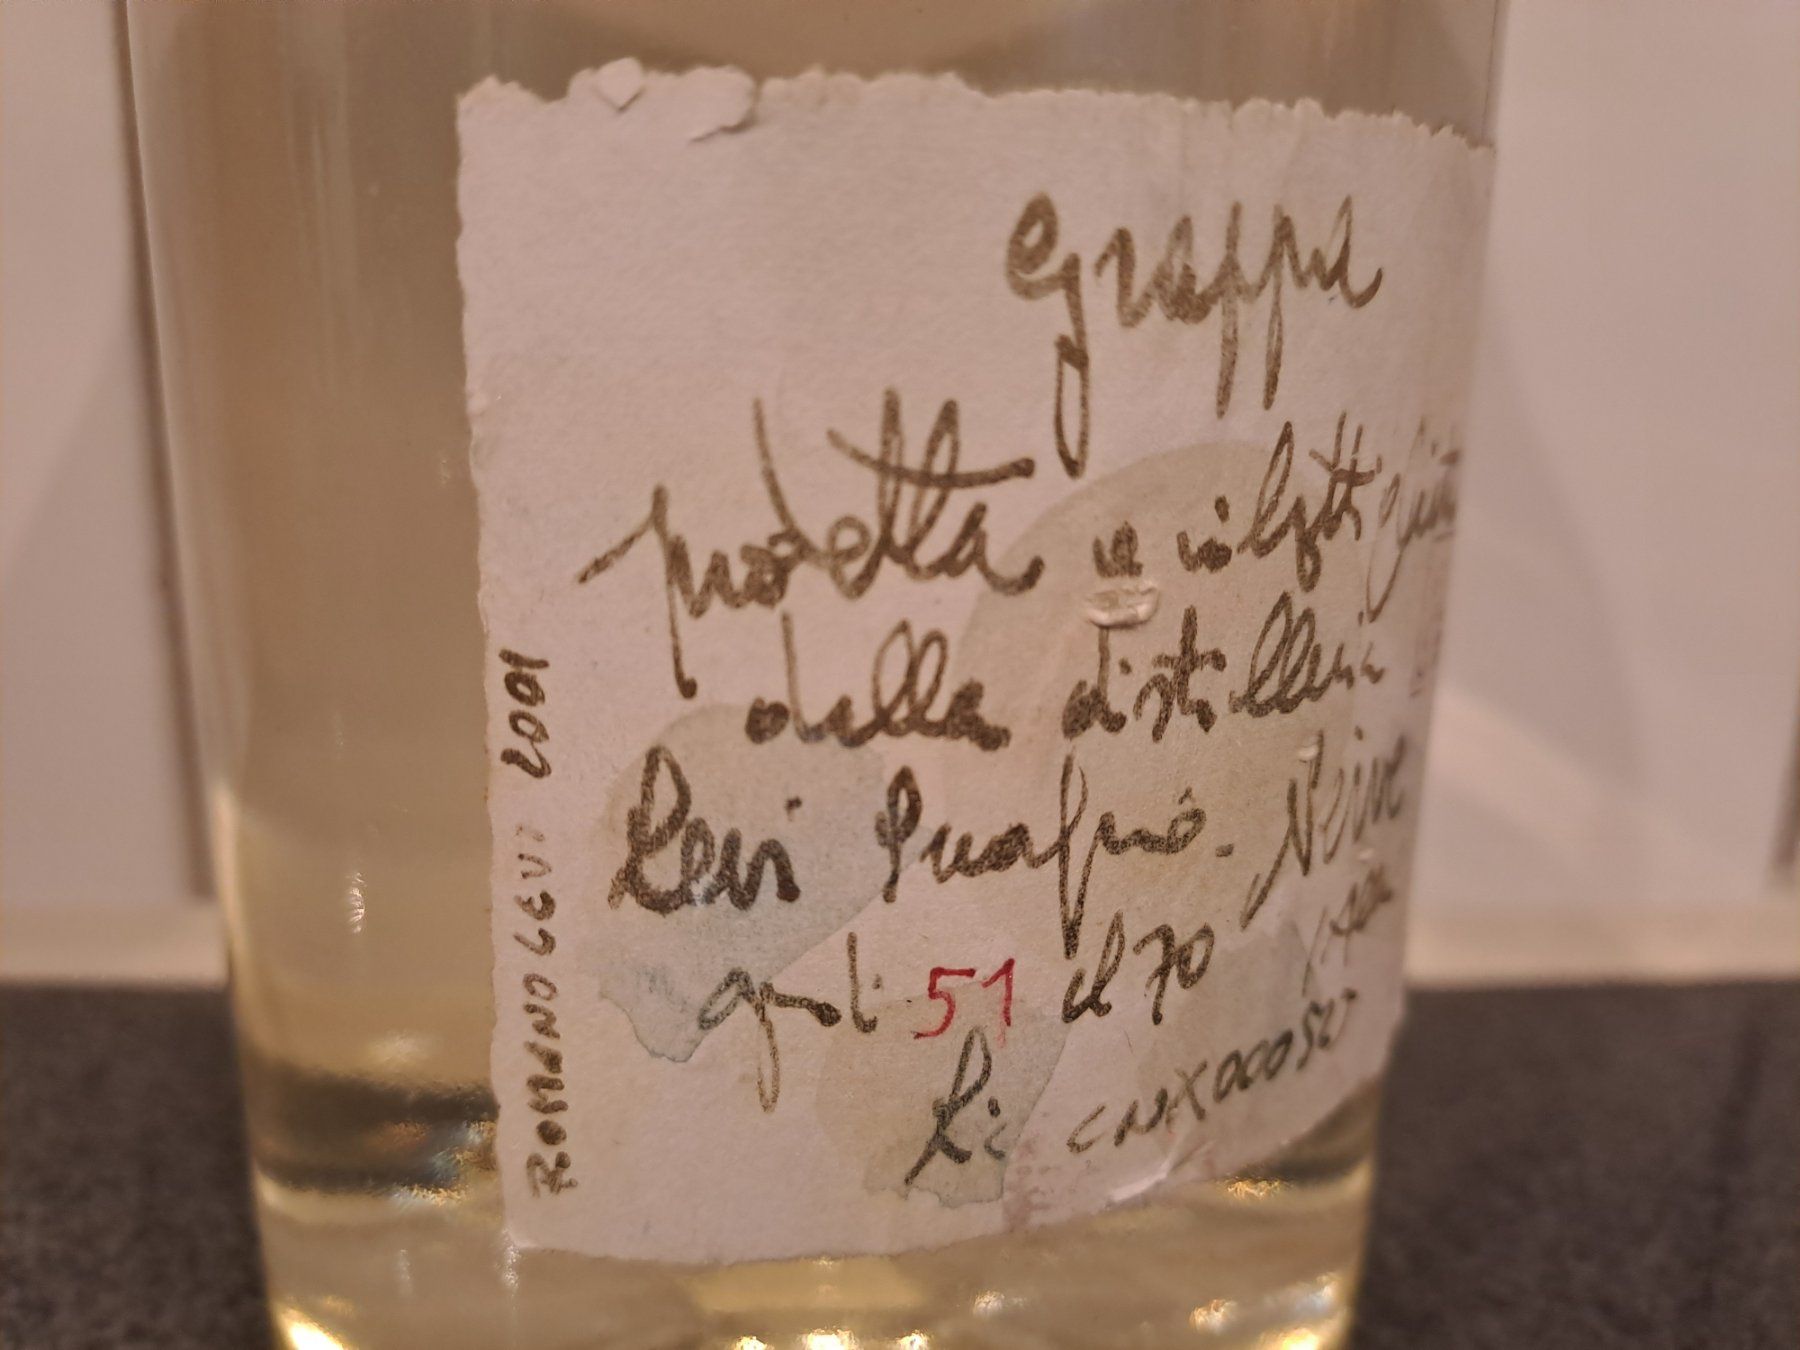 Grappa
prodotta e imbott
della distilleria
Levi Serafino. Neive
gradi 51 cl 70 ITALIA
Li CNX00052
ROMANO LEVI 2001